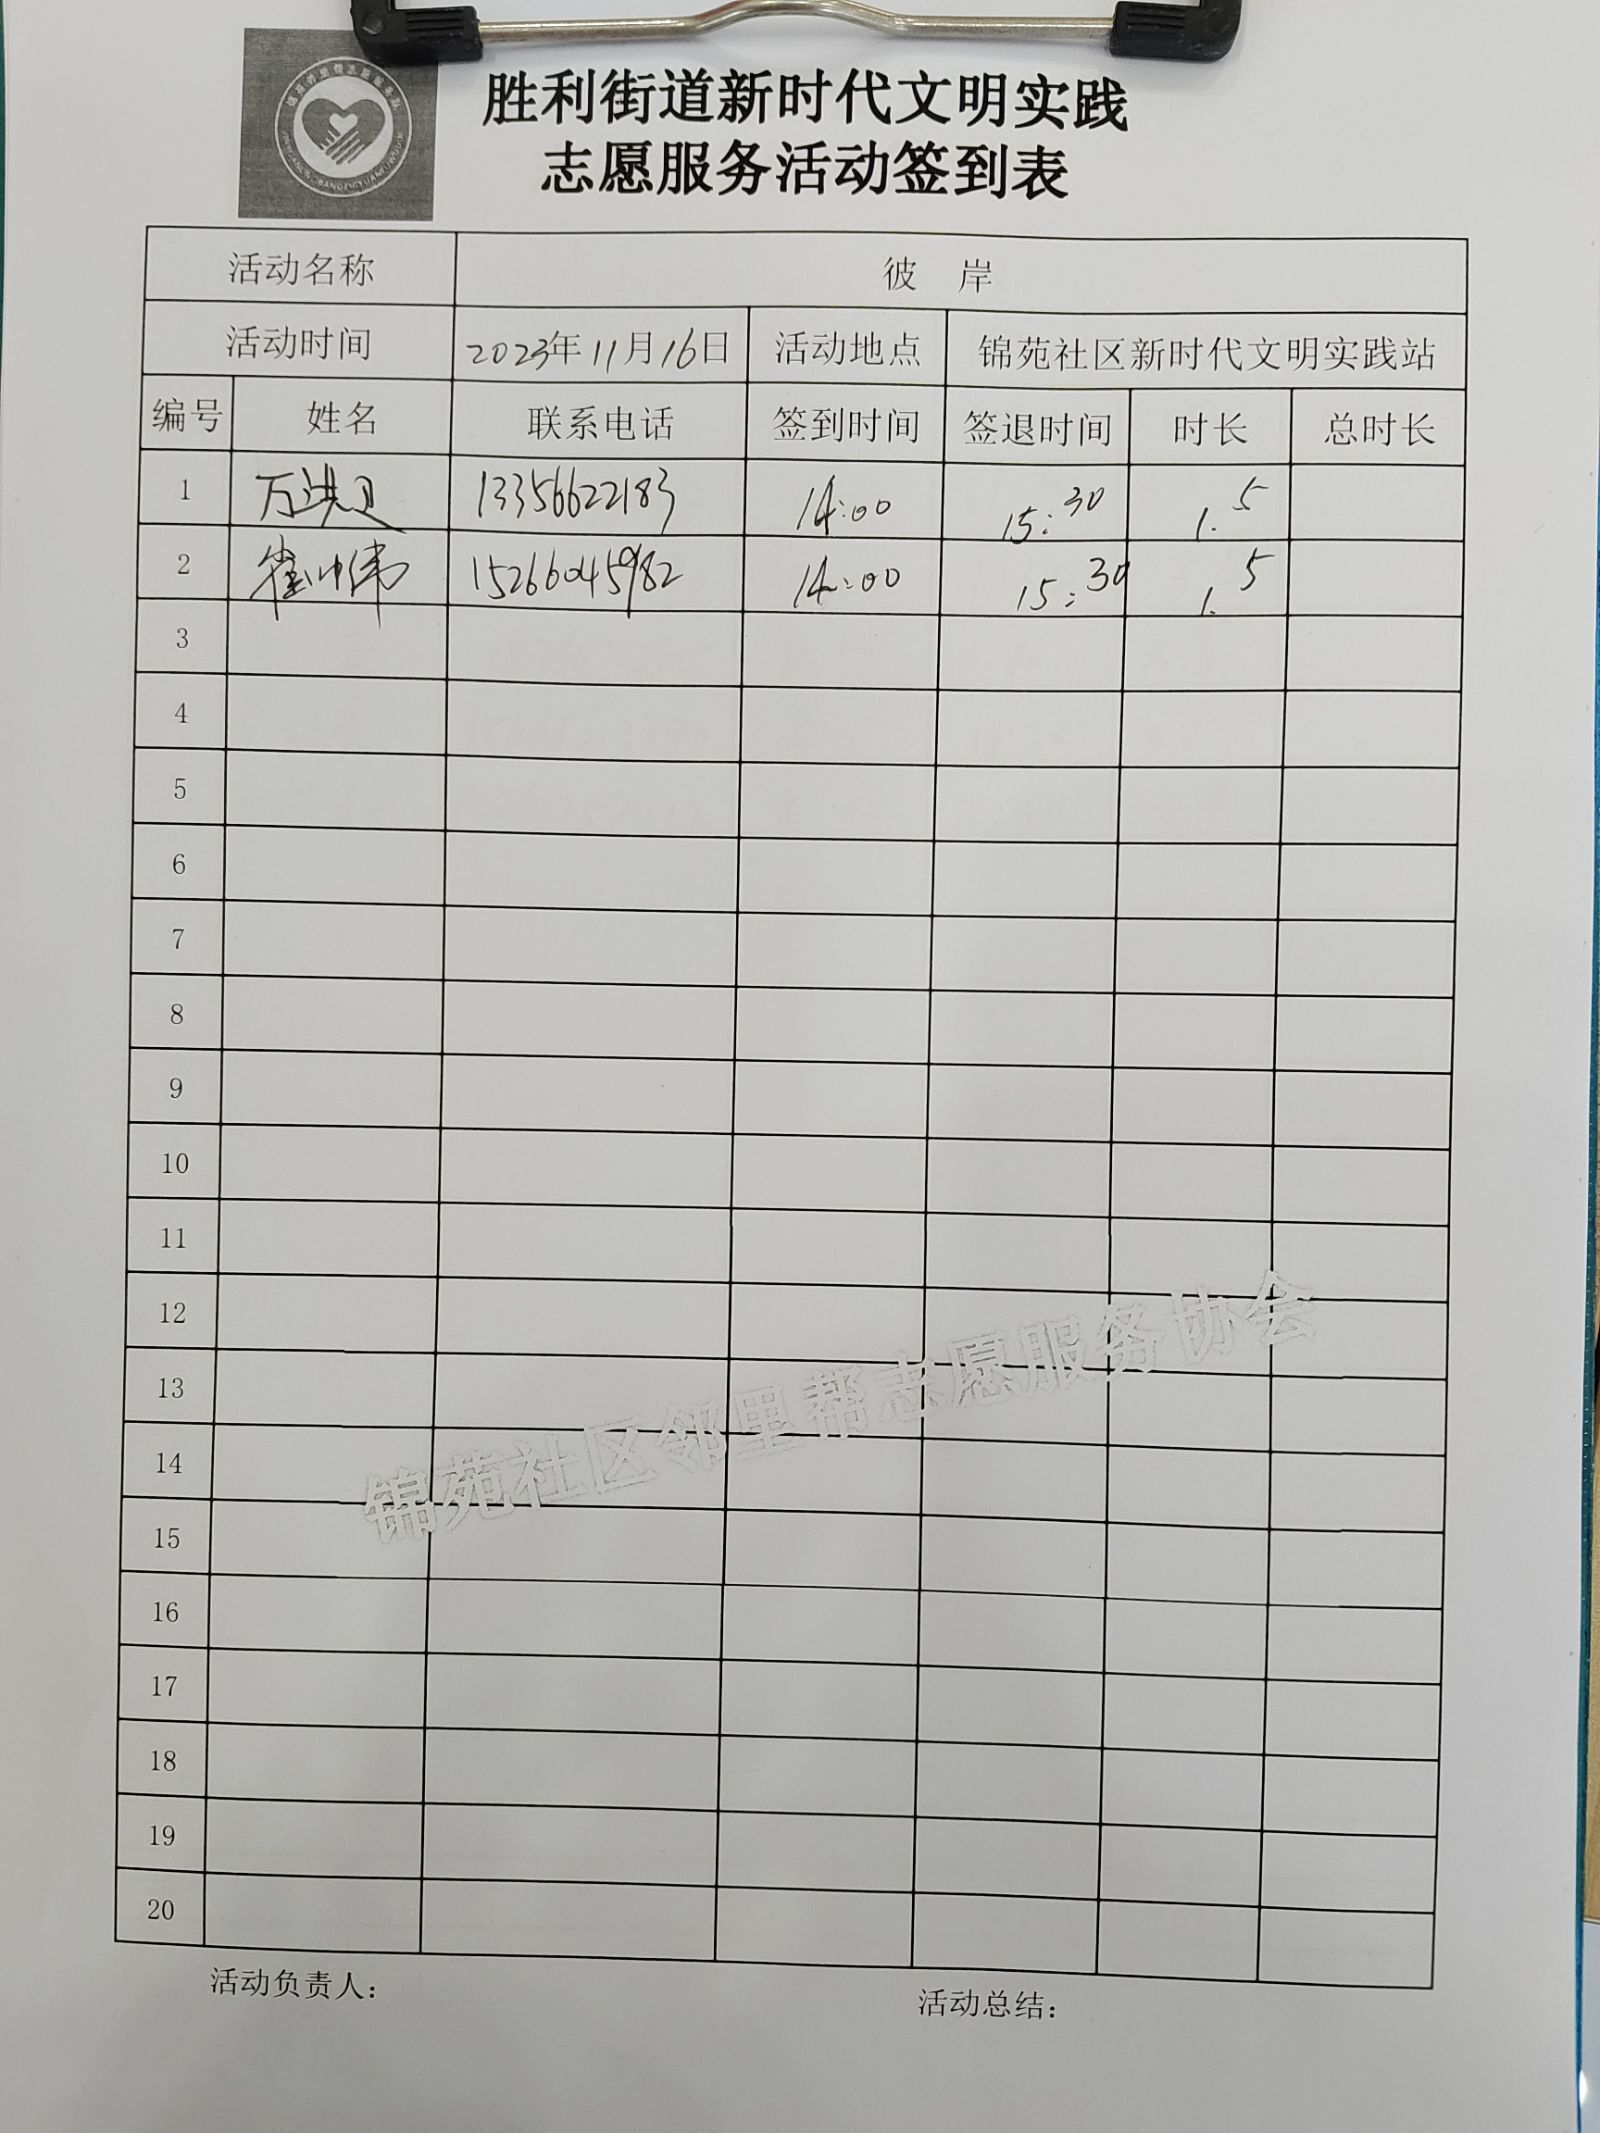 胜利街道新时代文明实践
志愿服务活动签到表
活动名称 彼 岸
活动时间 2023年11月16日 活动地点 锦苑社区新时代文明实践站
编号 姓名 联系电话 签到时间 签退时间 时长 总时长
1 万洪卫 13356622183 14:00 15:30 1.5
2 15266045982 14:00 15:30 1.5
3
4
5
6
7
8
9
10
11
12
13
14
15
16
17
18
19
20
锦苑社区邻里帮志愿服务协会
活动负责人： 活动总结：